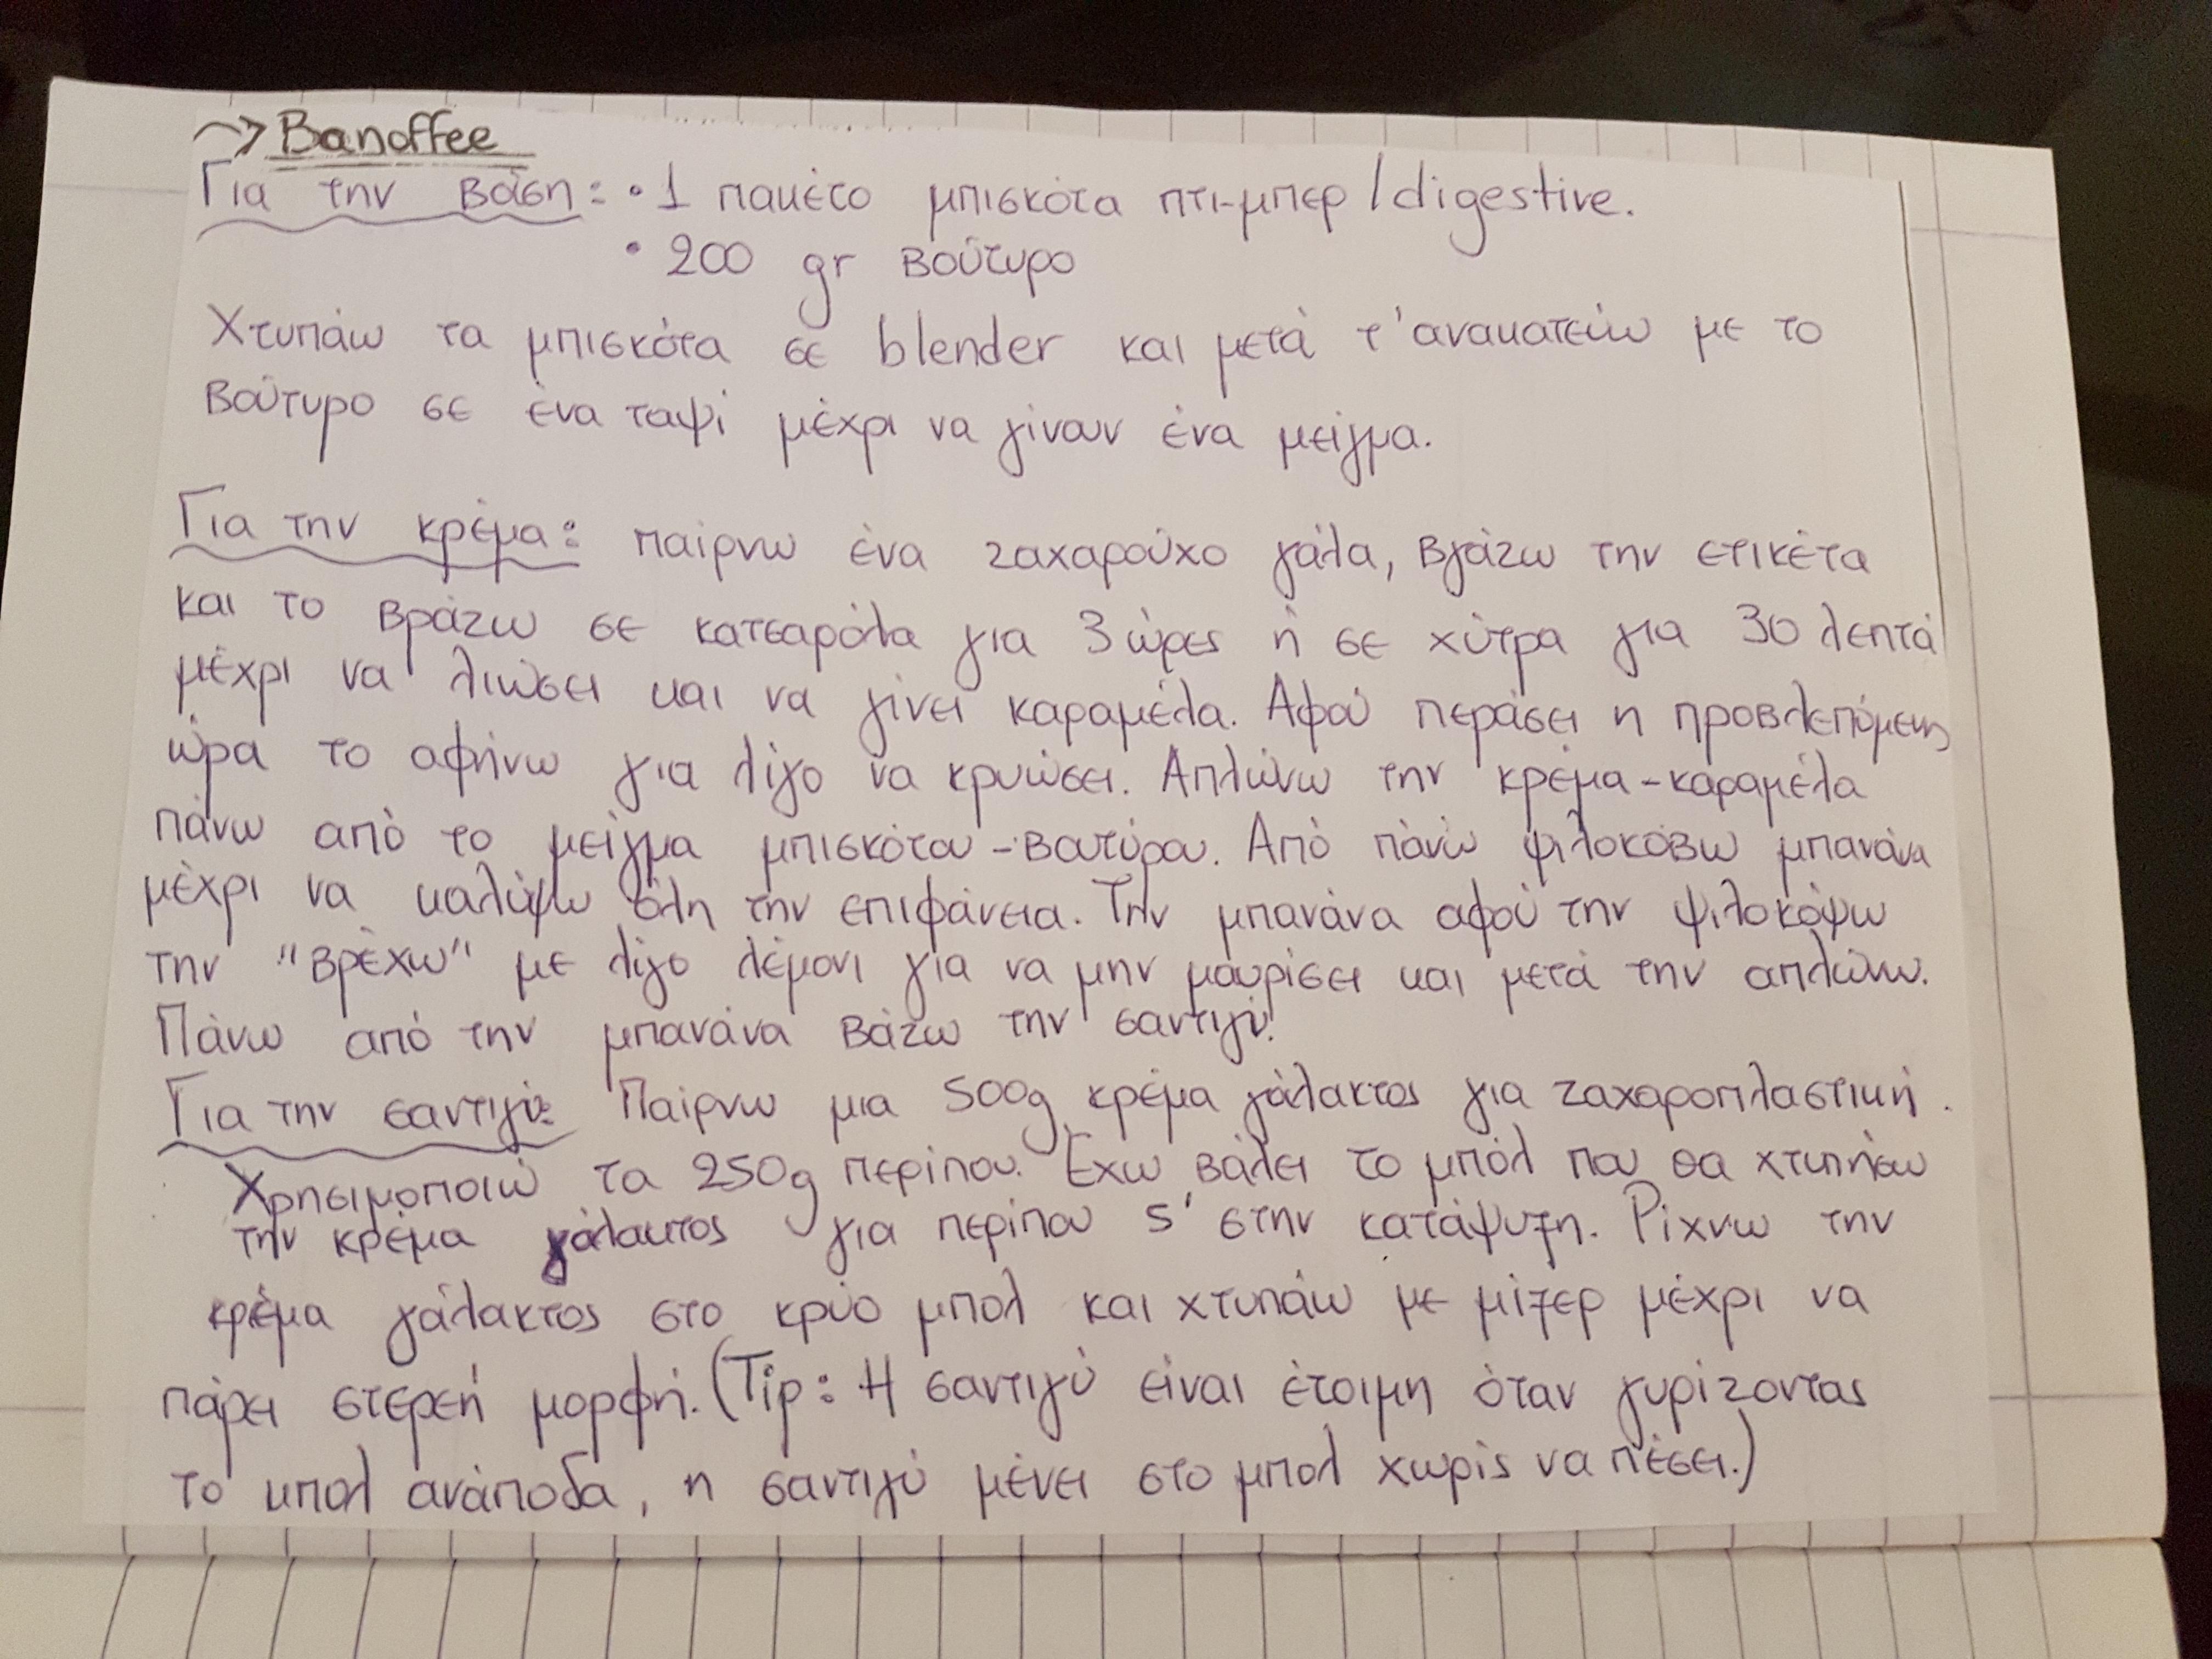 → Banoffee
Για την βάση: • 1 πακέτο μπισκότα πτι-μπερ / digestive.
• 200 gr βούτυρο
Χτυπάω τα μπισκότα σε blender και μετά τ'ανακατεύω με το
βούτυρο σε ένα ταψί μέχρι να γίνουν ένα μείγμα.
Για την κρέμα: παίρνω ένα ζαχαρούχο γάλα, βγάζω την ετικέτα
και το βράζω σε κατσαρόλα για 3 ώρες ή σε χύτρα για 30 λεπτά
μέχρι να λιώσει και να γίνει καραμέλα. Αφού περάσει η προβλεπόμενη
ώρα το αφήνω για λίγο να κρυώσει. Απλώνω την κρέμα-καραμέλα
πάνω από το μείγμα μπισκότου-βουτύρου. Από πάνω ψιλοκόβω μπανάνα
μέχρι να καλύψω όλη την επιφάνεια. Την μπανάνα αφού την ψιλοκόψω
την "βρέχω" με λίγο λέμονι για να μην μαυρίσει και μετά την απλώνω.
Πάνω από την μπανάνα βάζω την σαντιγύ.
Για την σαντιγύ: Παίρνω μια 500g κρέμα γάλακτος για ζαχαροπλαστική.
Χρησιμοποιώ τα 250g περίπου. Έχω βάλει το μπόλ που θα χτυπήσω
την κρέμα γάλακτος για περίπου 5' στην κατάψυξη. Ρίχνω την
κρέμα γάλακτος στο κρύο μπολ και χτυπάω με μίξερ μέχρι να
πάρει στερεή μορφή. (Tip: Η σαντιγύ είναι έτοιμη όταν γυρίζοντας
το μπολ ανάποδα, η σαντιγύ μένει στο μπολ χωρίς να πέσει.)